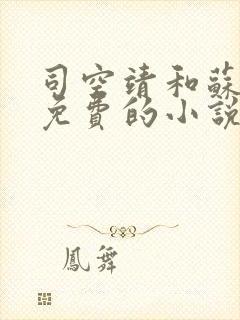 司空靖和蘇
免費的小說
鳳舞